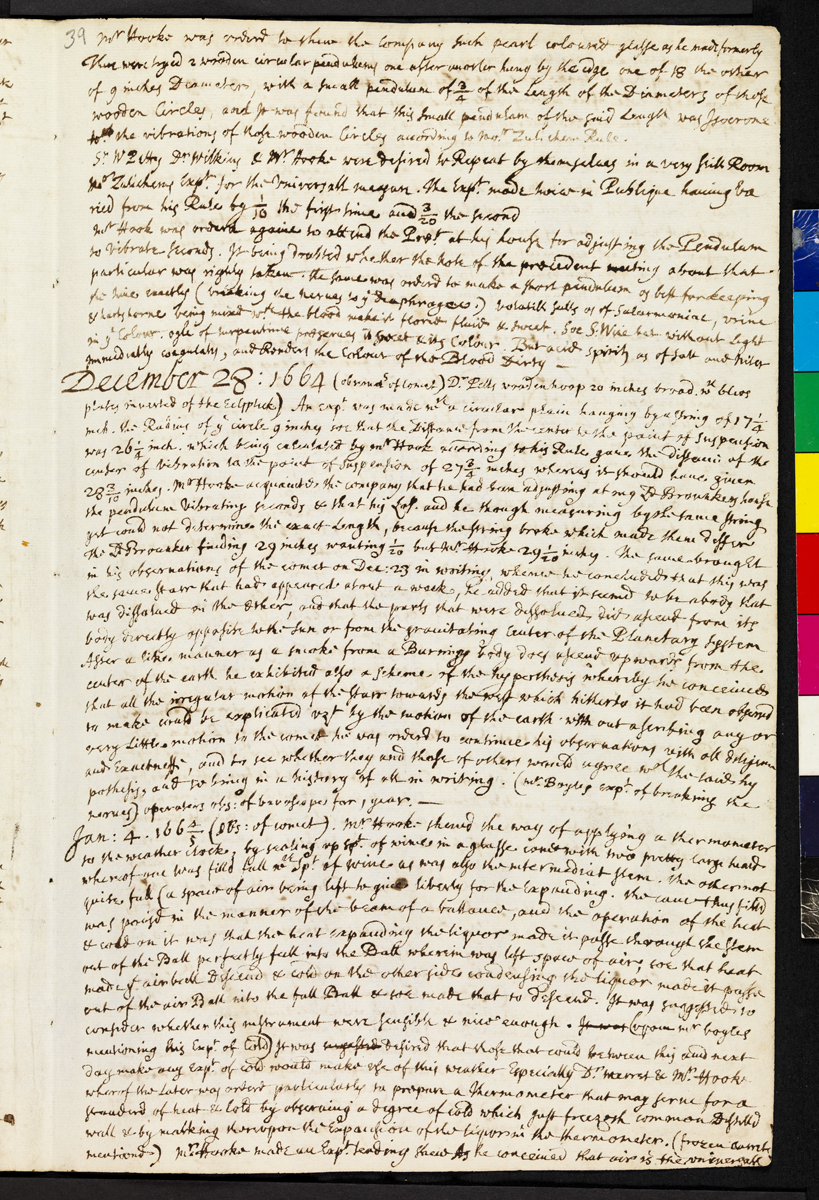 39 Mr Hooke was orderd to shew the Company such pearl coloured glasse as he made formerly
There were tryed 2 wooden circular pendulums one after another hung by the edge one of 18 the other
of 9 inches Diameters, with a small pendulum of 3/4 of the Length of the Diameters of those
wooden Circles, and It was found that this small pendulum of the said Length was
to the vibrations of those wooden Circles according to Monr Zulichem Rule.
Sr W Petty Dr Wilkins & Mr Hooke were desired to Repeat by themselves in a very still Room
Monr Zulichems Expt. for the Universall measure. The Expt. made twice in Publique having va
ried from his Rule by 1/10 the first time and 3/20 the second
Mr Hook was orderd againe to attend the Prest. at his house for adjusting the Pendulum
to Vibrate seconds. It being doubted whether the note of the precedent meeting about that
particular was rightly taken. the same was orderd to make a short pendulum as best for keeping
the time exactly (breaking the nerves to ye diaphragme.) Volatile salts as of Salarmoniac, urine
& hartshorne being mixed wth the blood make it florid fluid & sweet. soe Sp. Wine but without Light
in ye Colour. oyle of turpentine preserves it sweet & its Colour. But acid spirits as of salt and niter
immediatly coagulats, and Renders the Colour of the Blood Dirty —
December 28: 1664 (observat. of Comet) Dr. Petts wooden hoop 20 inches broad. wth blew
plates inverted of the Ecliptick) An expt. was made wth a circular plain hanging by a string of 17 1/4
inch. the Radius of ye circle 9 inches soe that the Distance from the center to the point of suspension
was 26 1/4 inch. which being calculated by mr Hook according to his Rule gave the distance of the
center of vibration to the point of suspension of 27 3/4 inches whereas it should have given
28 3/10 inches. Mr Hooke acquainted the company that he had been adjusting at my Ld Brounkers house
the pendulum Vibrating seconds & that his Losp. and he though measuring by the same string
yet could not determine the exact Length, because the string broke which made them differ
the Ld Brounker finding 29 inches wanting 1/10 but Mr Hooke 29 1/10 inches. The same brought
in his observations of the comet on Dec: 23 in writing, whence he concluded that this was
the same starr that had appeared about a week, he added that it seemd to be a body that
was dissolved in the AEther, and that the parts that were dissolved did ascend from its
body directly opposite to the sun or from the gravitating Center of the Planetary system
After a like manner as a smoke from a Burning body does ascend upwards from the
center of the earth he exhibited also a scheme of the hypothesis whereby he conceived
that all the irregular motion of the starr towards the west which hitherto it had been observd
to make could be explicated vzt by the motion of the earth without ascribing any or
very Little motion to the comet he was orderd to continue his observations with all diligence
and Exactnesse, and to see whether they and those of others would agree wth the said hy
pothesis, and to bring in a history of all in writing. (mr Boyles expt. of breaking the
nerves) operators obs: of baroscope for 1 year. —
Jan: 4. 166 4/5 (obs: of comet). Mr Hooke shewd the way of applying a thermometer
to the weather Clock, by sealing up spt. of wine in a glasse cane with two pretty large heads
whereof one was filld full wth spt of wine as was also the intermediat stem. the other not
quite full (a space of air being left to give liberty for the expanding. the cane thus filld
was poisd in the manner of the beam of a ballance, and the operation of the heat
& cold on it was that the heat expanding the liquor made it passe through the stem
out of the Ball perfectly full into the Ball wherein was left space of air, soe that heat
made ye airball descend & cold on the other side condensing the liquor made it passe
out of the air Ball into the full Ball & soe made that to descend. It was suggested to
consider whether this instrument were sensible & nice enough. It was upon mr boyles
mentioning his Expt. of Cold) It was suggested desired that those that could between this and next
day make any Expt. of cold would make use of this weather Especially Dr. merret & Mr. Hooke
wherof the Later was orderd particularly to prepare a Thermometer that may serve for a
standard of heat & Cold by observing a degree of cold which just freezeth common Distilld
watr & by marking thereupon the Expansion of the liquor in the thermometer. (frozen
mentiond) Mr. Hooke made an Expt. tending shew As he conceived that air is the universall